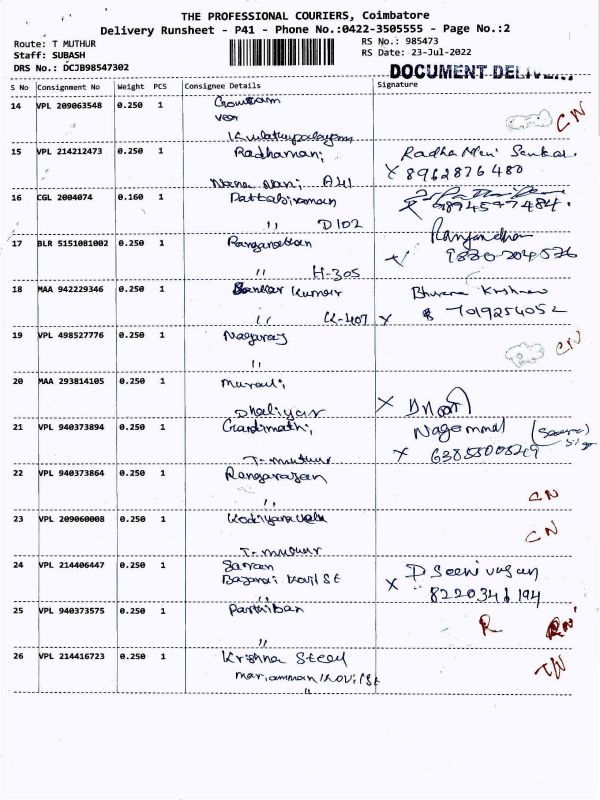 THE PROFESSIONAL COURIERS, Coimbatore
Delivery Runsheet - P41 - Phone No.:0422-3505555 - Page No.:2
Route: T MUTHUR
RS No.: 985473
Staff: SUBASH
RS Date: 23-Jul-2022
DRS No.: DCJB98547302
DOCUMENT DELIVERY
S No Consignment No Weight PCS Consignee Details Signature
14 VPL 209063548 0.250 1 Gowtham
CN
15 VPL 214212473 0.250 1 Radhamani Radha Mani Sankar
Nana Nani A41 X 8962876480
16 CGL 2004074 0.160 1 Pattabiraman
" D102
17 BLR 5151081002 0.250 1 Ranganathan
" H-305
18 MAA 942229346 0.250 1 Sankar Kumar Bhuvana Krishnan
" K-407 X 7019254052
19 VPL 498527776 0.250 1 Nagaraj CN
"
20 MAA 293814105 0.250 1 Murali
Dhaliyur X
21 VPL 940373894 0.250 1 Gandimathi, Nagammal
T-muthur X
22 VPL 940373864 0.250 1 Rangarajan
" CN
23 VPL 209060008 0.250 1 Kodiyana velu CN
T-muthur
24 VPL 214406447 0.250 1 Saran D Seenivasan
Bajanai Kovil St X 8220341194
25 VPL 940373575 0.250 1 Parthiban R
"
26 VPL 214416723 0.250 1 Krishna Steel
mariamman Kovil St
"